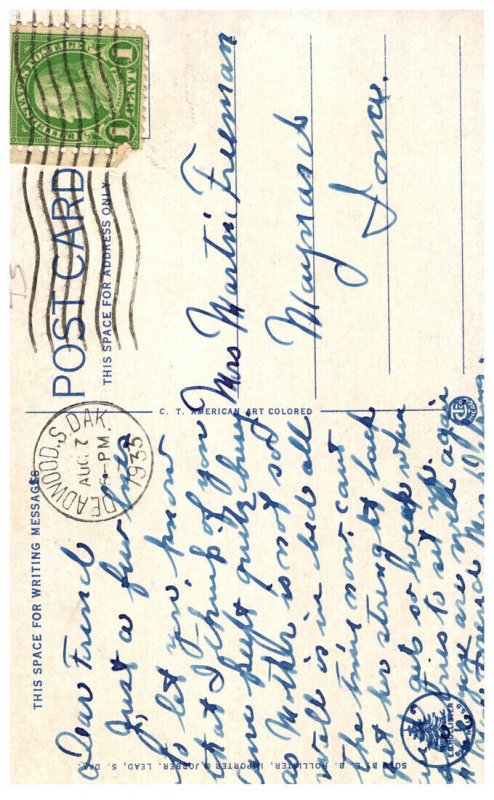 THIS SPACE FOR WRITING MESSAGES
Dear Friend
Just a few lines
to let you know
that I think of you
am kept quite busy
as Mother is not so
well is in bed all
the time now. cant
get her strength back
gets so weak when
tries to set up.
hope you are well again
and Mrs
DEADWOOD, S. DAK.
AUG 7
PM
1935
SOLD BY E. B. HOLLISTER, IMPORTER & JOBBER, LEAD, S. DAK.
C. T. AMERICAN ART COLORED
POST CARD
THIS SPACE FOR ADDRESS ONLY
UNITED STATES POSTAGE
1 CENT 1
Mrs Martin Freeman
Maynard
Iowa.